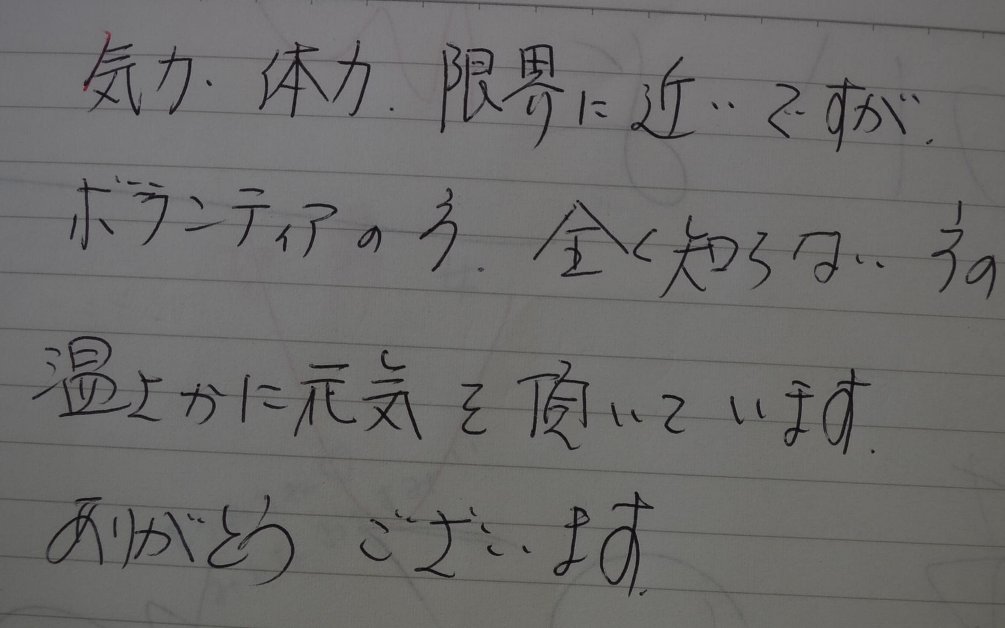 気力、体力、限界に近いですが、
ボランティアの方、全く知らない方の
温とかに元気を頂いています。
ありがとうございます。